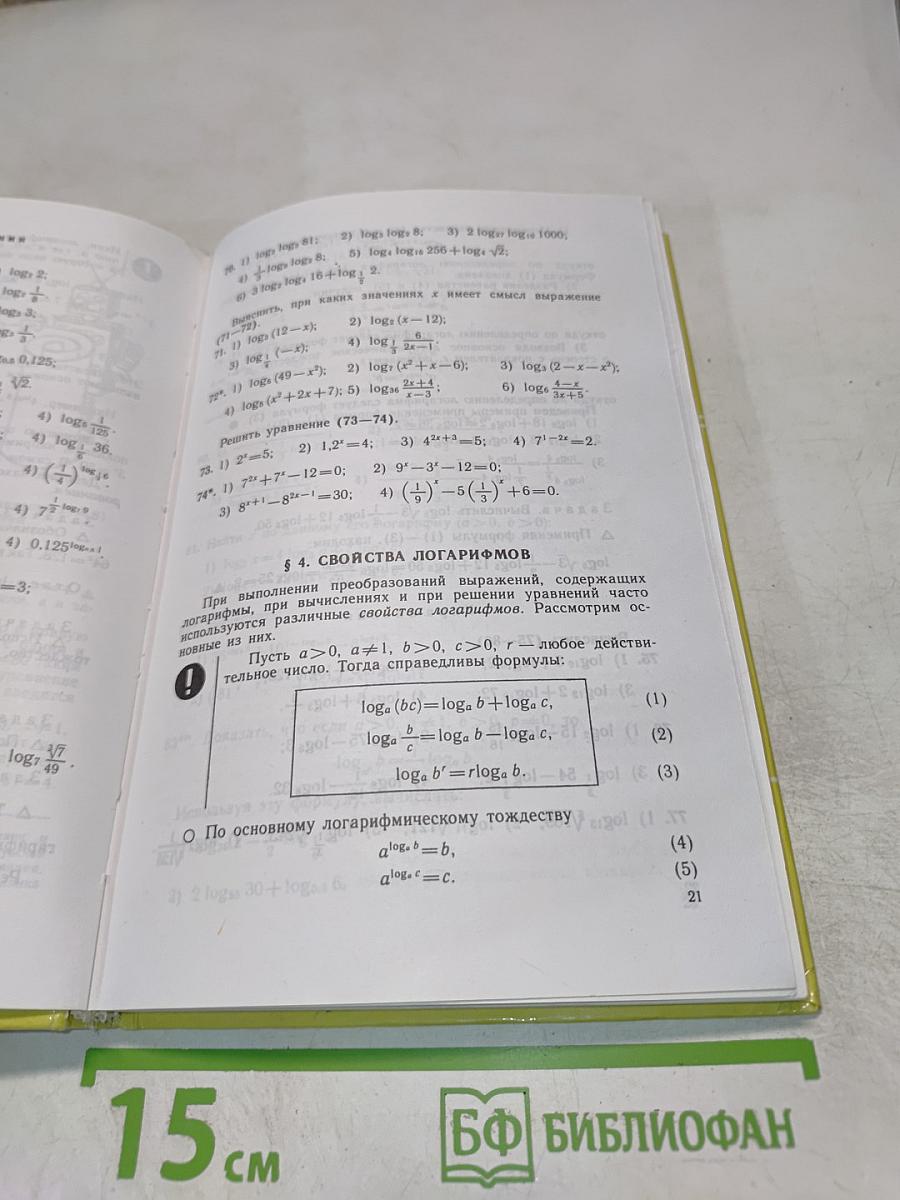 log₇ 2;
log₂ 1/8.
log₃ 3;
1/3.
0,125;
∛2.
4) log₅ 1/125.
4) log_{1/6} 36.
4) (1/4)
4) 7
4) 0.125
=3;
log₇ ∛7/49.
70. 1) log₂ log₃ 81; 2) log₃ log₂ 8; 3) 2 log₂₇ log₁₀ 1000;
4) 1/3 log₉ log₂ 8; 5) log₄ log₁₆ 256+log₄ √2;
6) 3 log₂ log₄ 16+log_{1/2} 2.
Выяснить, при каких значениях x имеет смысл выражение
(71—72).
71. 1) log₃ (12—x); 2) log₂ (x—12);
3) log_{1/4} (—x); 4) log_{1/3} 6/(2x—1).
72*. 1) log₆ (49—x²); 2) log₇ (x²+x—6); 3) log₃ (2—x—x²);
4) log₅ (x²+2x+7); 5) log₃₆ (2x+4)/(x—3); 6) log₆ (4—x)/(3x+5).
Решить уравнение (73—74).
73. 1) 2ˣ=5; 2) 1,2ˣ=4; 3) 4²ˣ⁺³=5; 4) 7¹⁻²ˣ=2.
74*. 1) 7²ˣ+7ˣ—12=0; 2) 9ˣ—3ˣ—12=0;
3) 8ˣ⁺¹—8²ˣ⁻¹=30; 4) (1/9)ˣ—5(1/3)ˣ+6=0.
§ 4. СВОЙСТВА ЛОГАРИФМОВ
При выполнении преобразований выражений, содержащих
логарифмы, при вычислениях и при решении уравнений часто
используются различные свойства логарифмов. Рассмотрим ос-
новные из них.
! Пусть a>0, a≠1, b>0, c>0, r — любое действи-
тельное число. Тогда справедливы формулы:
logₐ (bc)=logₐ b+logₐ c, (1)
logₐ b/c=logₐ b—logₐ c, (2)
logₐ bʳ=rlogₐ b. (3)
По основному логарифмическому тождеству
a^{logₐ b}=b, (4)
a^{logₐ c}=c. (5)
21
15 см
БФ БИБЛИОФАН